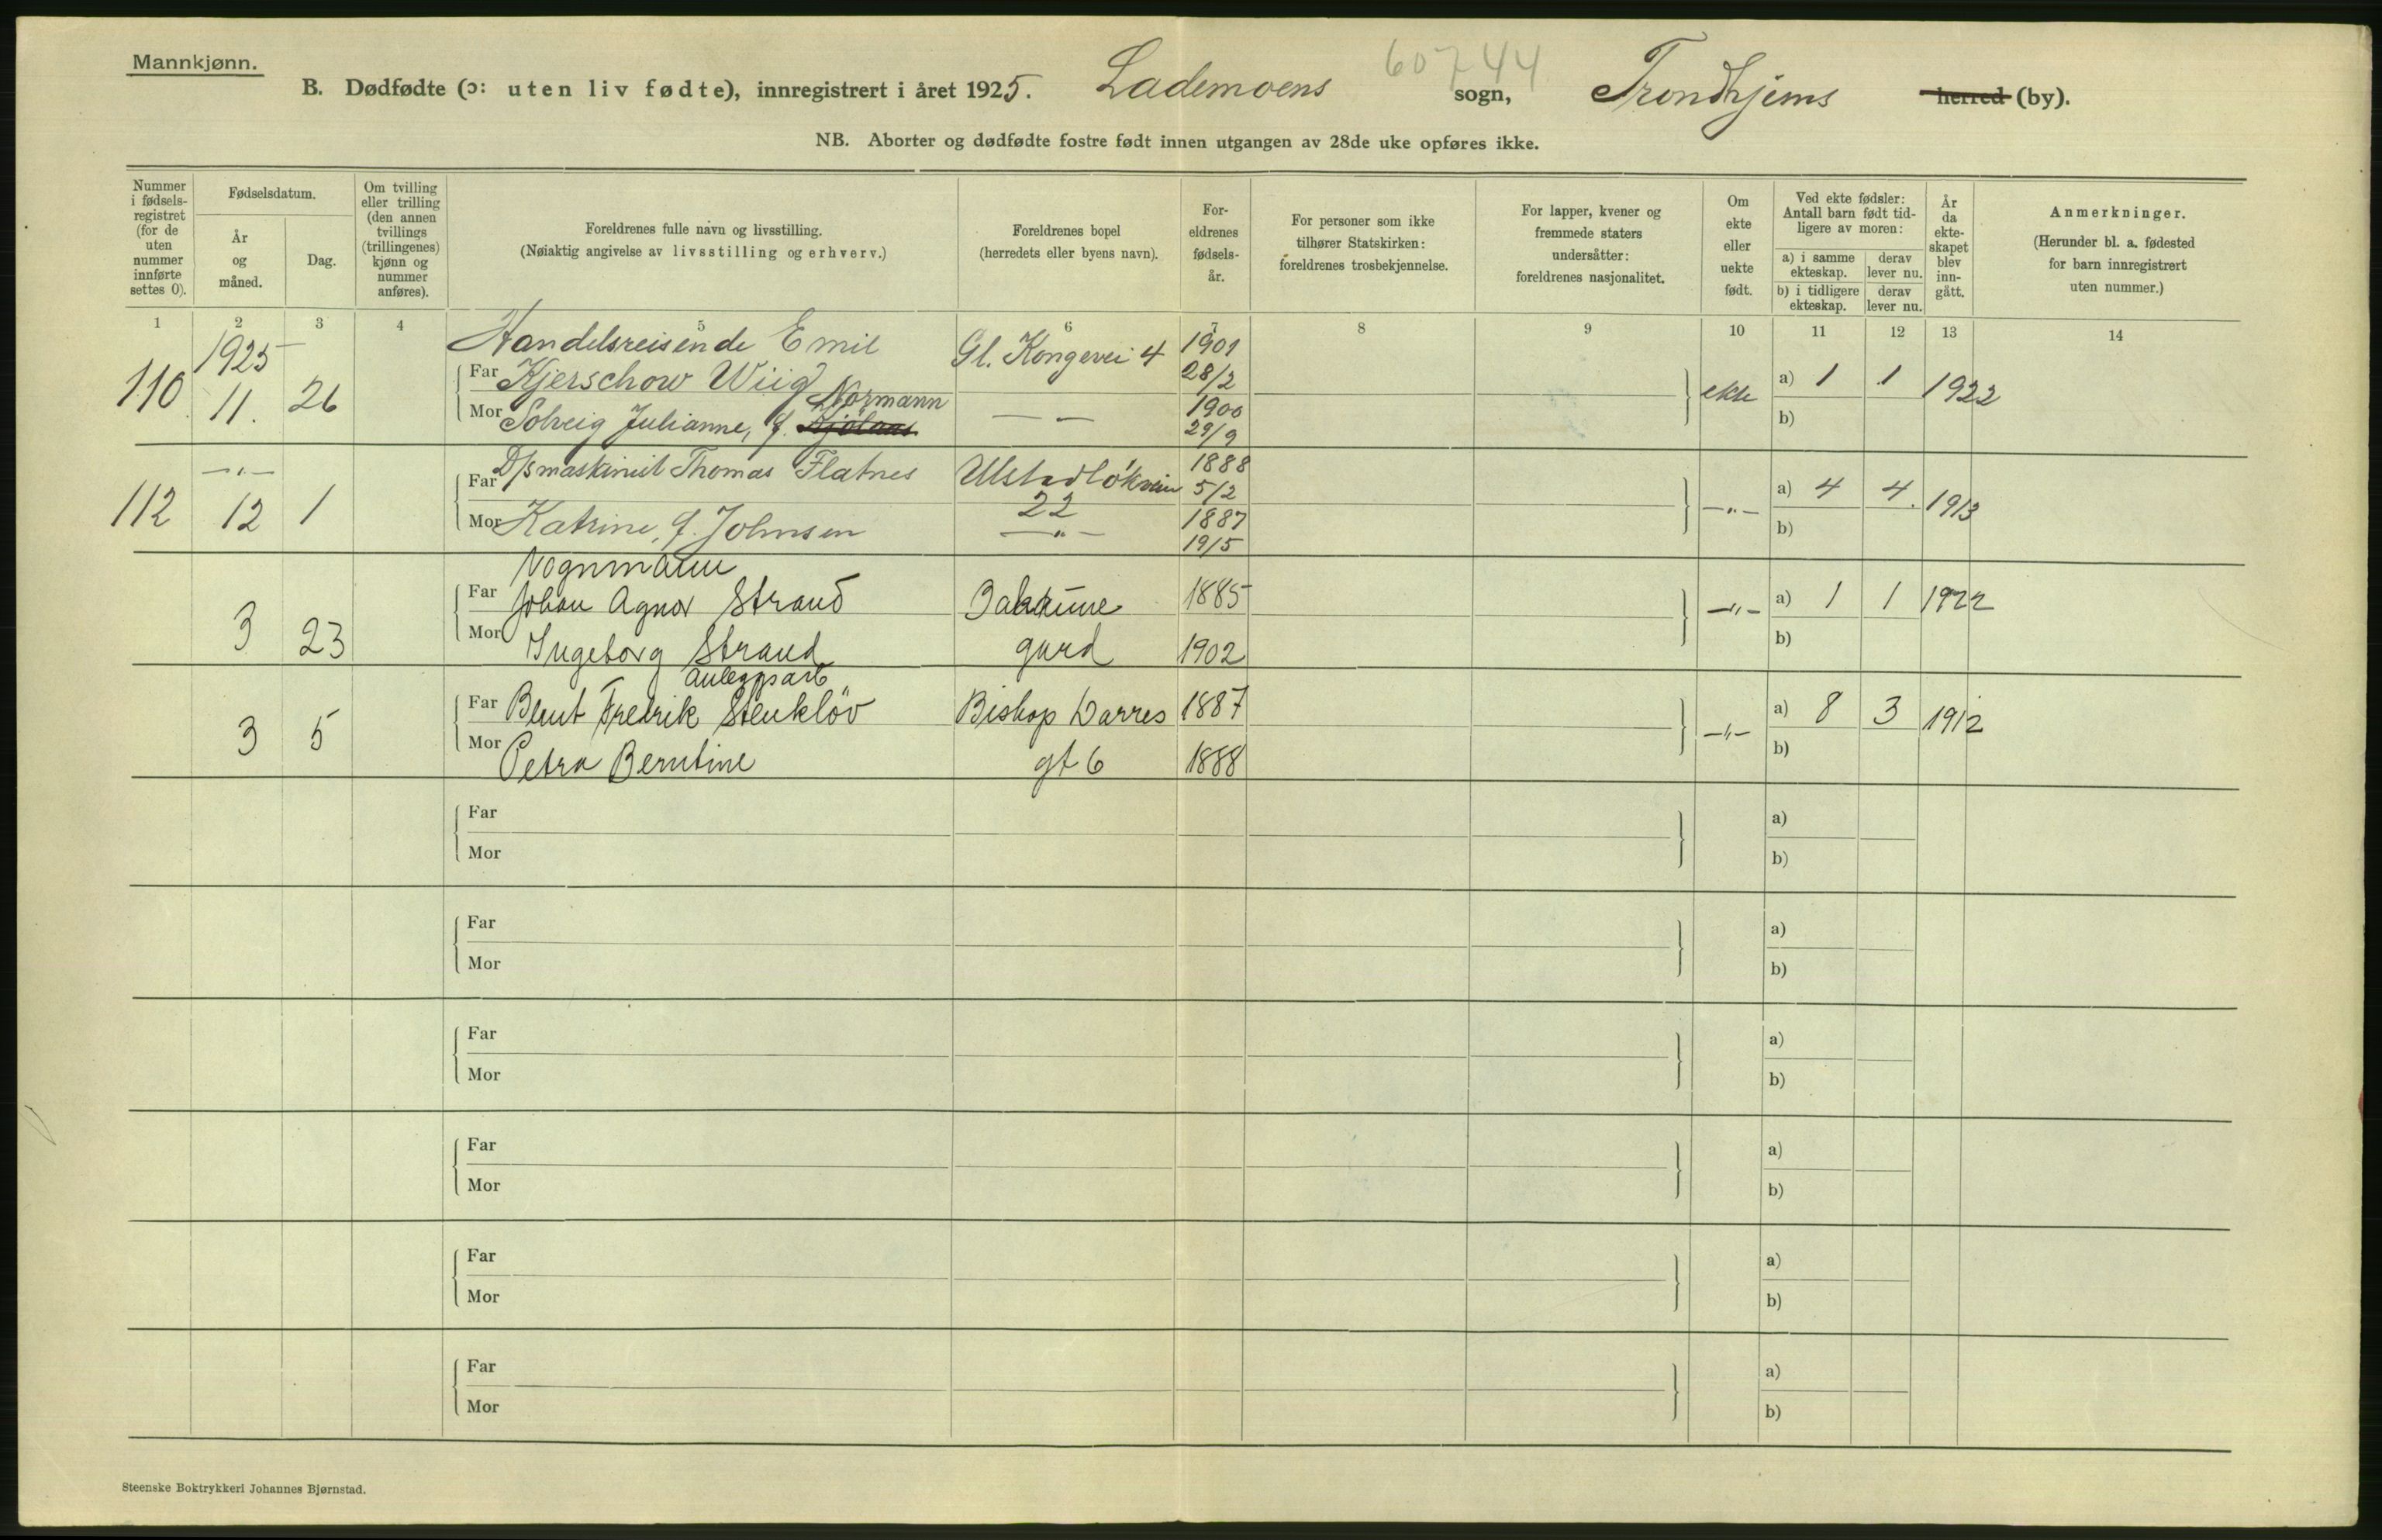 Mannkjønn.
60744
B. Dødfødte (ɔ: uten liv fødte), innregistrert i året 1925. Lademoens sogn, Trondhjems herred (by).
NB. Aborter og dødfødte fostre født innen utgangen av 28de uke opføres ikke.
Nummer i fødsels-registret (for de uten nummer innførte settes 0).
Fødselsdatum.
År og måned.
Dag.
Om tvilling eller trilling (den annen tvillings (trillingenes) kjønn og nummer anføres).
Foreldrenes fulle navn og livsstilling.
(Nøiaktig angivelse av livsstilling og erhverv.)
Foreldrenes bopel
(herredets eller byens navn).
For-eldrenes fødsels-år.
For personer som ikke tilhører Statskirken: foreldrenes trosbekjennelse.
For lapper, kvener og fremmede staters undersåtter: foreldrenes nasjonalitet.
Om ekte eller uekte født.
Ved ekte fødsler: Antall barn født tid-ligere av moren:
a) i samme ekteskap.
derav lever nu.
b) i tidligere ekteskap.
derav lever nu.
År da ekte-skapet blev inn-gått.
Anmerkninger.
(Herunder bl. a. fødested for barn innregistrert uten nummer.)
1 2 3 4 5 6 7 8 9 10 11 12 13 14
1925 Handelsreisende Emil Gl. Kongevei 4 1901
110 11. 26 Far Kjerschow Wiig 28/2 ekte a) 1 1 1922
Normann
Mor Solveig Julianne, f. — — 1900 b)
29/9
—"— D/smaskinist Thomas Flatnes Ulstadløkvein 1888
112 12 1 Far 22 5/2 —"— a) 4 4. 1913
Mor Katrine, f. Johnsen —"— 1887 b)
19/5
Vognmann
Far Johan Agnar Strand Bakaune 1885 —"— a) 1 1 1922
3 23 Mor Ingeborg Strand gård 1902 b)
anleggsarb
Far Bernt Fredrik Stenkløv Biskop Darres 1887 —"— a) 8 3 1912
3 5 Mor Petra Berntine gt 6 1888 b)
Far a)
Mor b)
Far a)
Mor b)
Far a)
Mor b)
Far a)
Mor b)
Far a)
Mor b)
Far a)
Mor b)
Steenske Boktrykkeri Johannes Bjørnstad.